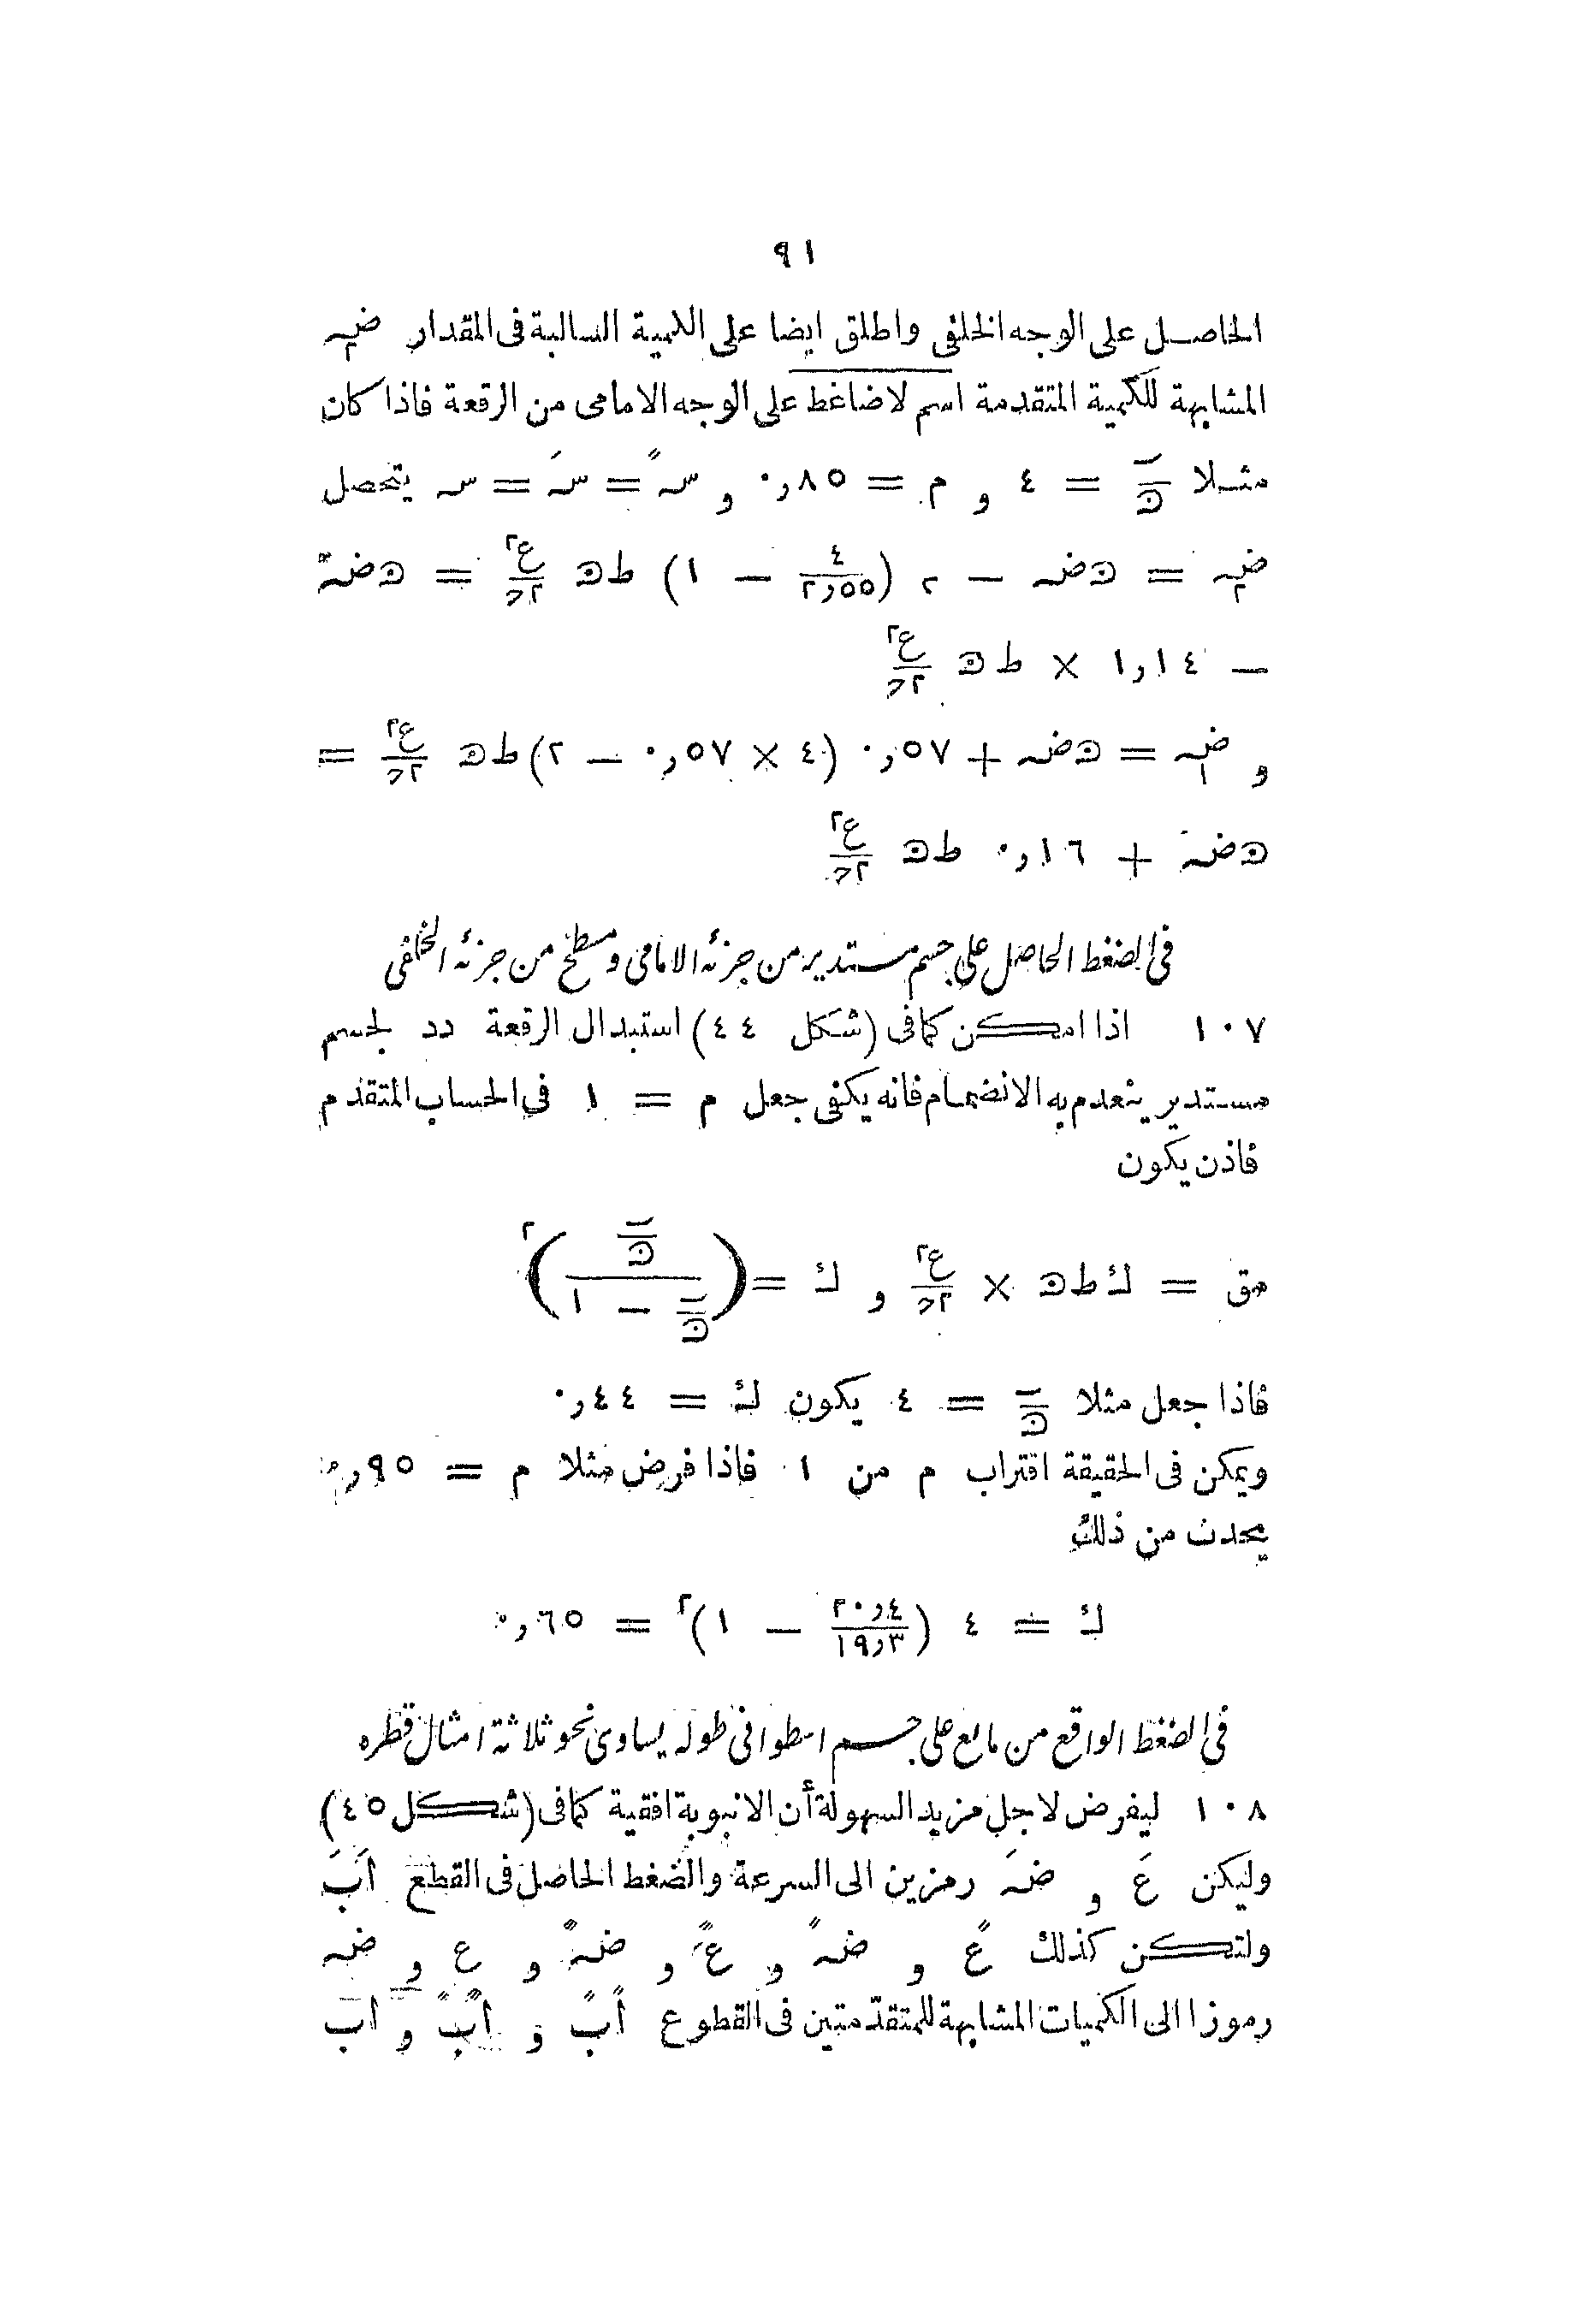 ٩١
الحاصل على الوجه الخلفى واطلق ايضا على الكمية السالبة فى المقدار ضہ٢
المشابهة للكمية المتقدمة اسم لاضاغط على الوجه الامامى من الرقعة فاذا كان
مثلا = ٤ و م = ٠٫٨٥ و سہً = سہَ = سہ يتحصل
ضہ٢ = ضہ − ٢ (٤/٢٫٥٥ − ١) ط ع٢/٢ = ضہ
− ١٫١٤ × ط ع٢/٢
و ضہ١ = ضہ + ٠٫٥٧ (٤ × ٠٫٥٧ − ٢) ط ع٢/٢ =
ضہ + ٠٫١٦ ط ع٢/٢
فى الضغط الحاصل على جسم مستدير من جزئه الامامى ومسطح من جزئه الخلفى
١٠٧ اذا امكن كما فى (شكل ٤٤) استبدال الرقعة دد لجسم
مستدير ينعدم به الانضمام فانه يكفى جعل م = ١ فى الحساب المتقدم
فاذن يكون
مق = ك ط × ع٢/٢ و ك = ( / − ١)٢
فاذا جعل مثلا = ٤ يكون ك = ٠٫٤٤
ويمكن فى الحقيقة اقتراب م من ١ فاذا فرض مثلا م = ٠٫٩٥
يحدث من ذلك
ك = ٤ (٢٠٫٤/١٩٫٣ − ١)٢ = ٠٫٦٥
فى الضغط الواقع من مايع على جسم اسطوانى طوله يساوى نحو ثلاثة امثال قطره
١٠٨ ليفرض لاجل مزيد السهولة أن الانبوبة افقية كما فى (شكل ٤٥)
وليكن عَ و ضہَ رمزين الى السرعة والضغط الحاصل فى القطع اَبَ
ولتكن كذلك عً و ضہً و ع و ضہ و ع و ضہ
رموزا الى الكميات المشابهة للمتقدّمتين فى القطوع اًبً و اب و اب